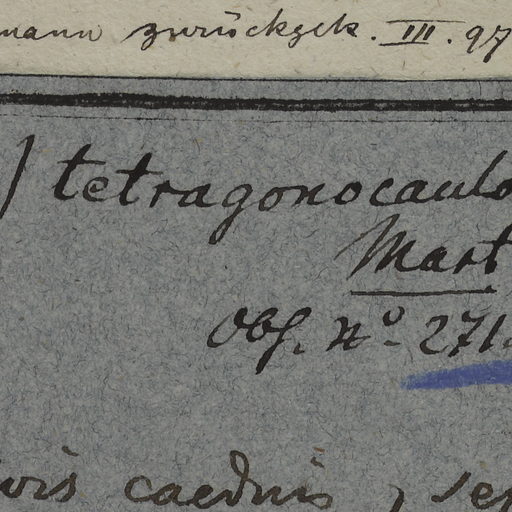 mann zurückgek. III. 97
) tetragonocaulo
Mart
Obs. No. 271.
caeduis , se